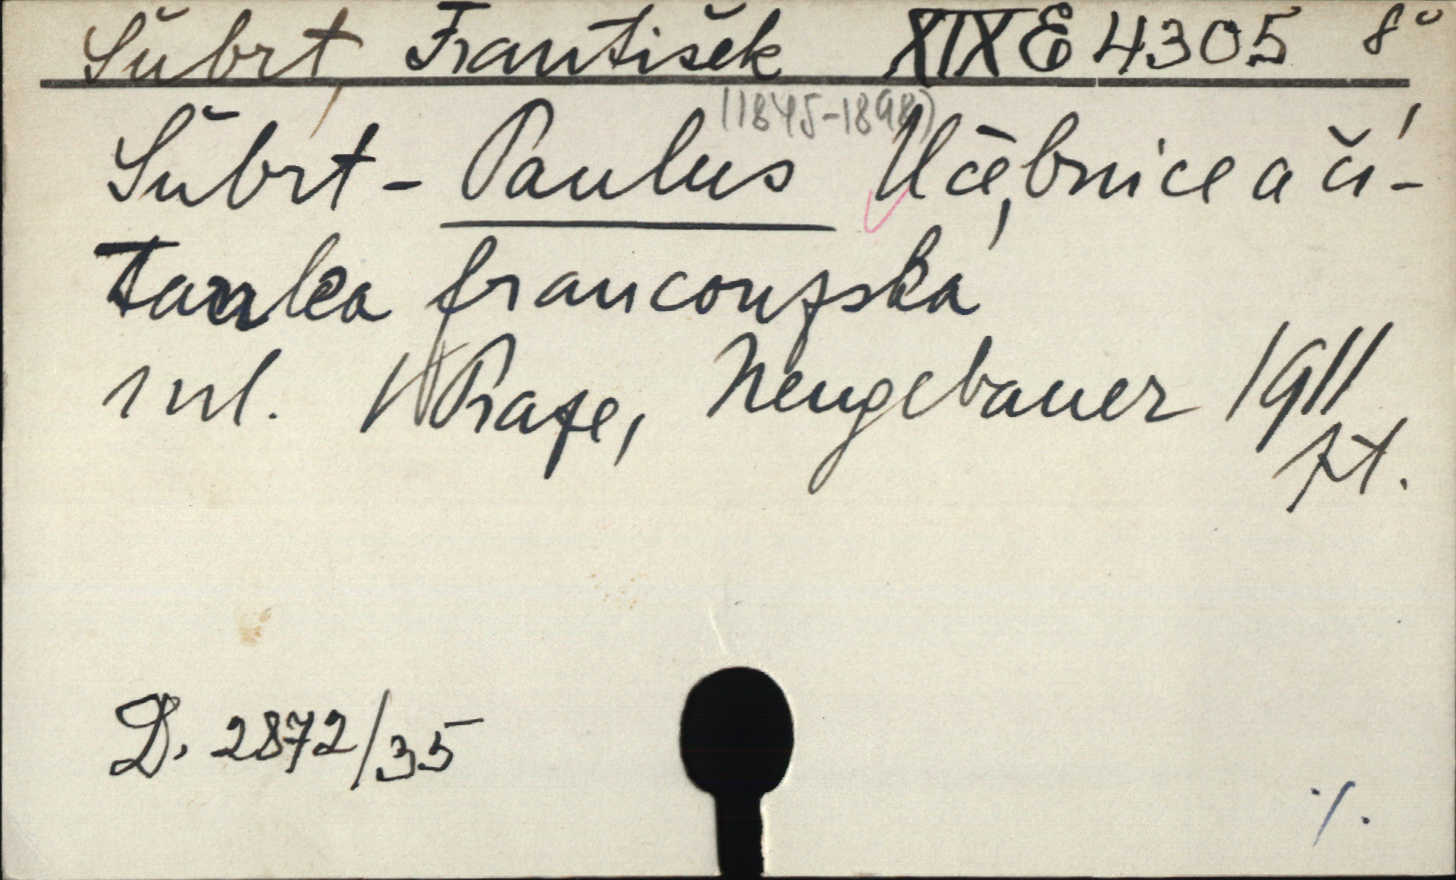 Šubrt, František XIX E 4305 8°
(1845-1898)
Šubrt - Paulus Učebnice a čí-
tanka francouzská
1 vyd. V Praze, Neugebauer 1911
D. 2872/35
·/.